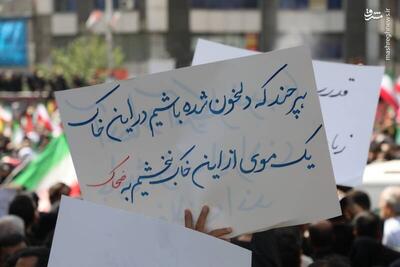 هرچند که دلخون شده باشیم در این خاک
یک موی از این خاک نبخشیم به ضحاک
قدر
زبا
مشرق
mashreghnews.ir